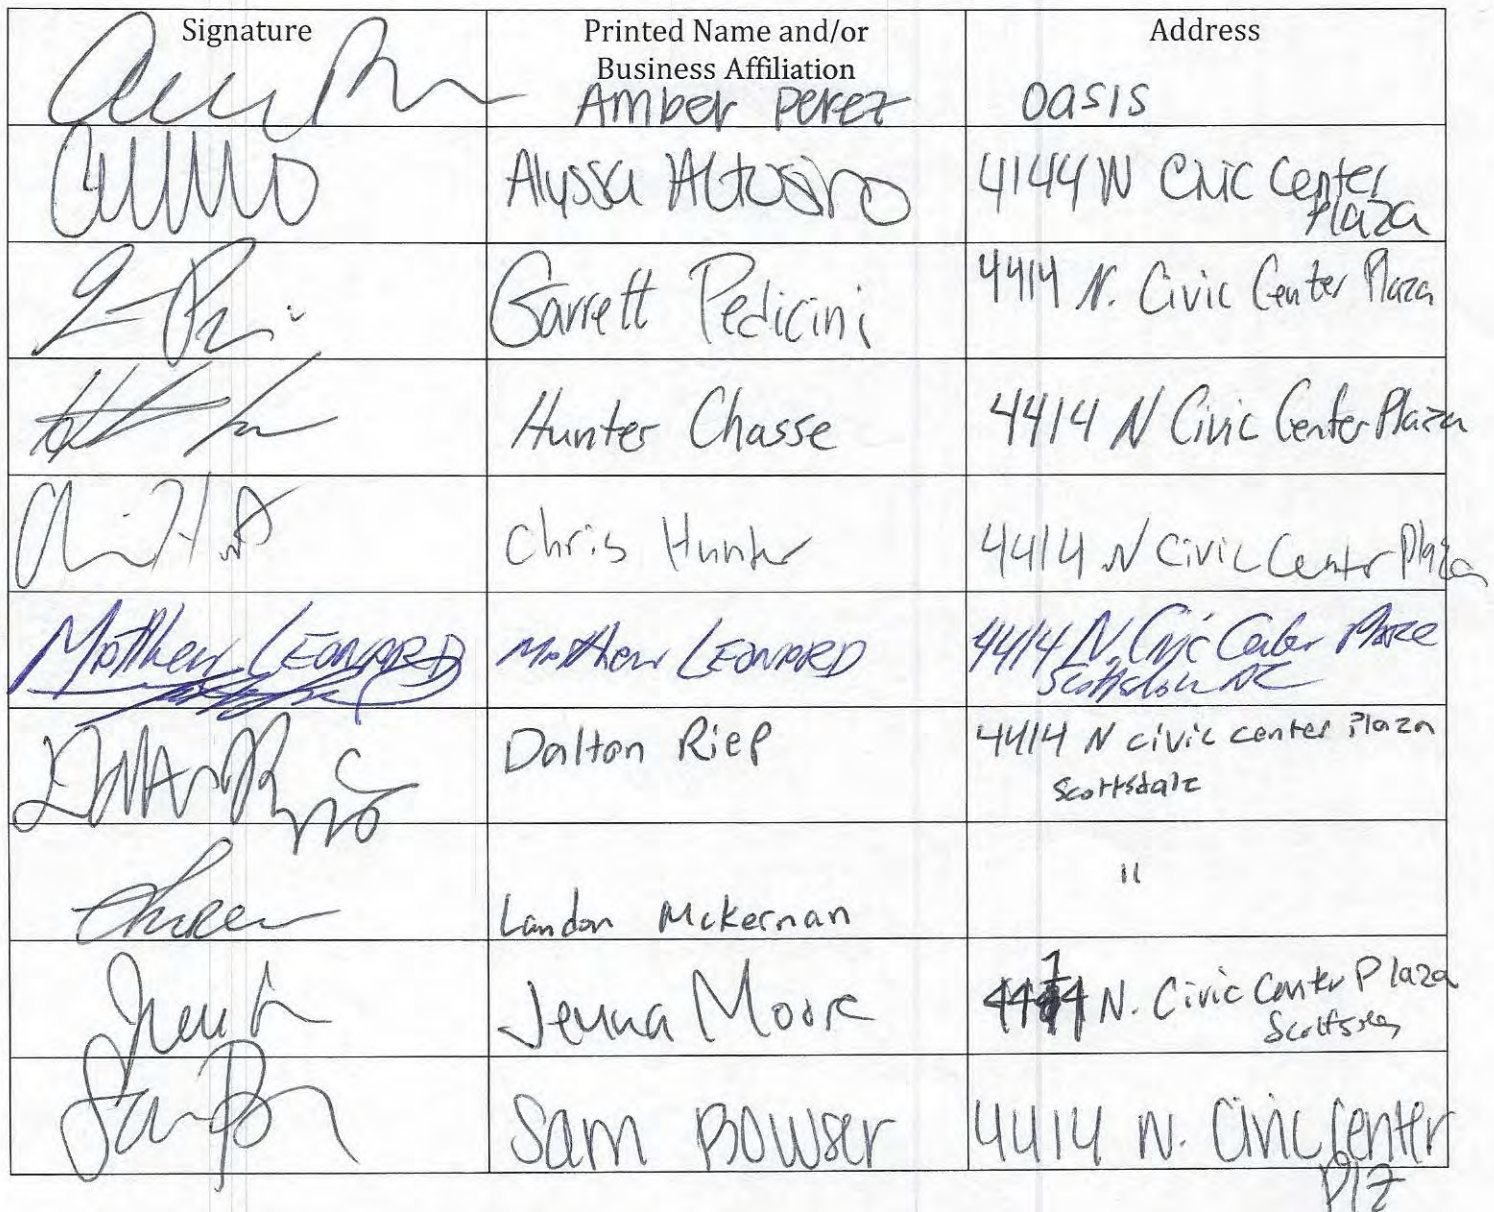 Signature
Printed Name and/or
Business Affiliation
Address
Amber Perez
oasis
Alyssa
4144 N Civic Center
Plaza
Garrett Pedicini
4414 N. Civic Center Plaza
Hunter Chasse
4414 N Civic Center Plaza
Chris Hunter
4414 N Civic Center Plaza
Matthew LEONARD
Matthew LEONARD
4414 N. Civic Center Plaza
Dalton Riep
4414 N civic center Plaza
Scottsdale
Landon Mckernan
"
Jenna Moore
N. Civic Center Plaza
Sam Bowser
4414 N. Civic Center
Plz